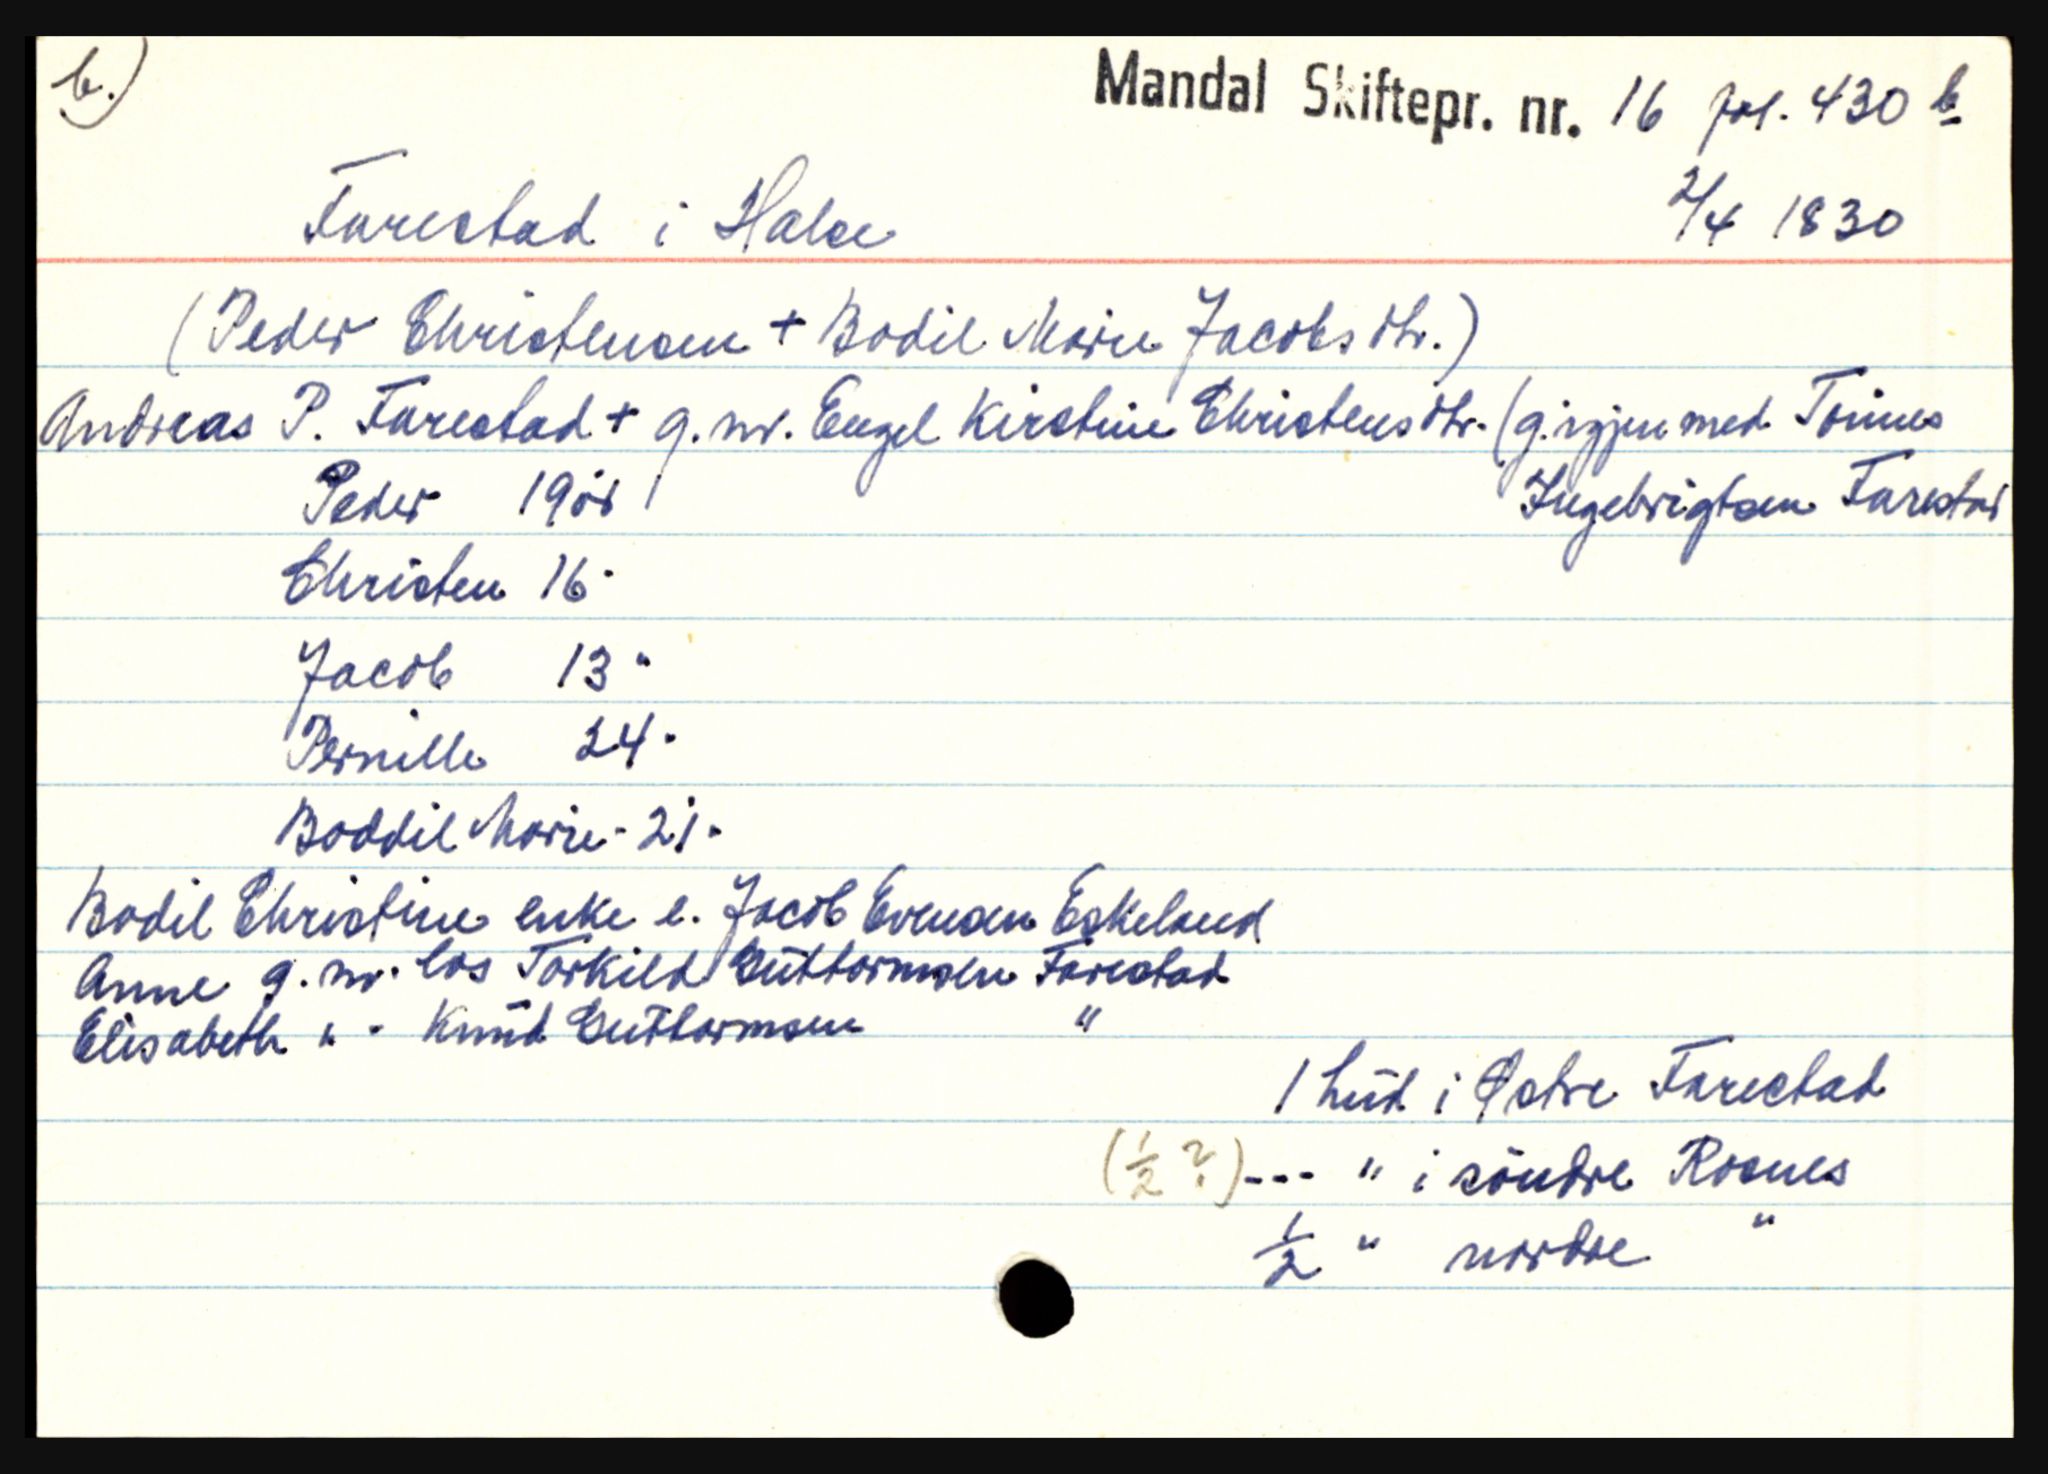 b.)
Mandal Skiftepr. nr. 16 fol. 430 b
2/4 1830
Farestad i Halse
(Peder Christensen + Bodil Marie Jacobsdtr.)
Andreas P. Farestad + g.m. Engel Kirstine Christensdtr. (g. igjen med Tönnes
Peder 19 år
Ingebrigtsen Farestad
Christen 16 "
Jacob 13 "
Pernille 24 "
Boddil Marie - 21 "
Bodil Christine enke e. Jacob Evensen Eskeland
Anne g.m. los Torkild Guttormsen Farestad
Elisabeth " - Knud Guttormsen "
1 hud i Østre Farestad
(½ ?) --- " i söndre Rosnes
½ " nordre "